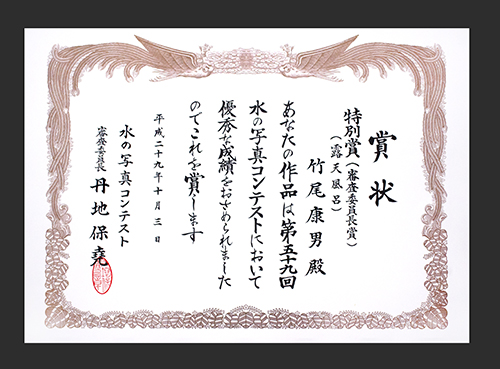 賞状
特別賞（審査委員長賞）
（露天風呂）
竹尾康男殿
あなたの作品は第五十九回
水の写真コンテストにおいて
優秀な成績をおさめられました
のでこれを賞します
平成二十九年十月三日
水の写真コンテスト
審査委員長 丹地保堯